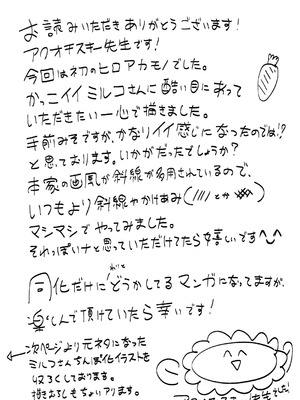 お読みいただきありがとうございます！
アクオチスキー先生です！
今回は初のヒロアカモノでした。
かっこイイミルコさんに酷い目にあって
いただきたい一心で描きました。
手前みそですが、かなりイイ感じになったのでは！？
と思っております。いかがだったでしょうか？
本家の画風が斜線が多用されているので、
いつもより斜線やかけあみ（//// とか ）
マシマシでやってみました。
それっぽいナと思っていただけてたら嬉しいです^^
わりと
同化だけにどうかしてるマンガになってますが、
楽しんで頂けていたら幸いです！
←次ページより元ネタになった
ミルコさんちんぽ化イラストを
収ろくしております。
描きおろしもちょいアリます。
アクオチスキー先生でした！